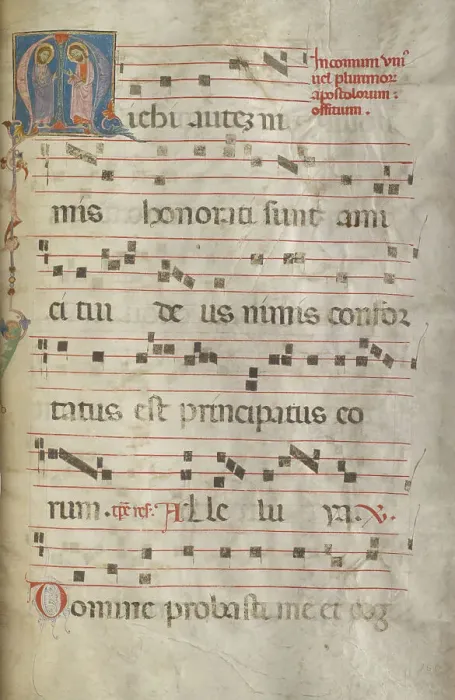 In comuni uniꝰ
uel plurimor
apostolorum :
offitium .
Michi autez ni
mis honorati sunt ami
ci tui de us nimis confor
tatus est principatus eo
rum . Alle lu ya. V.
Domine probasti me et cog